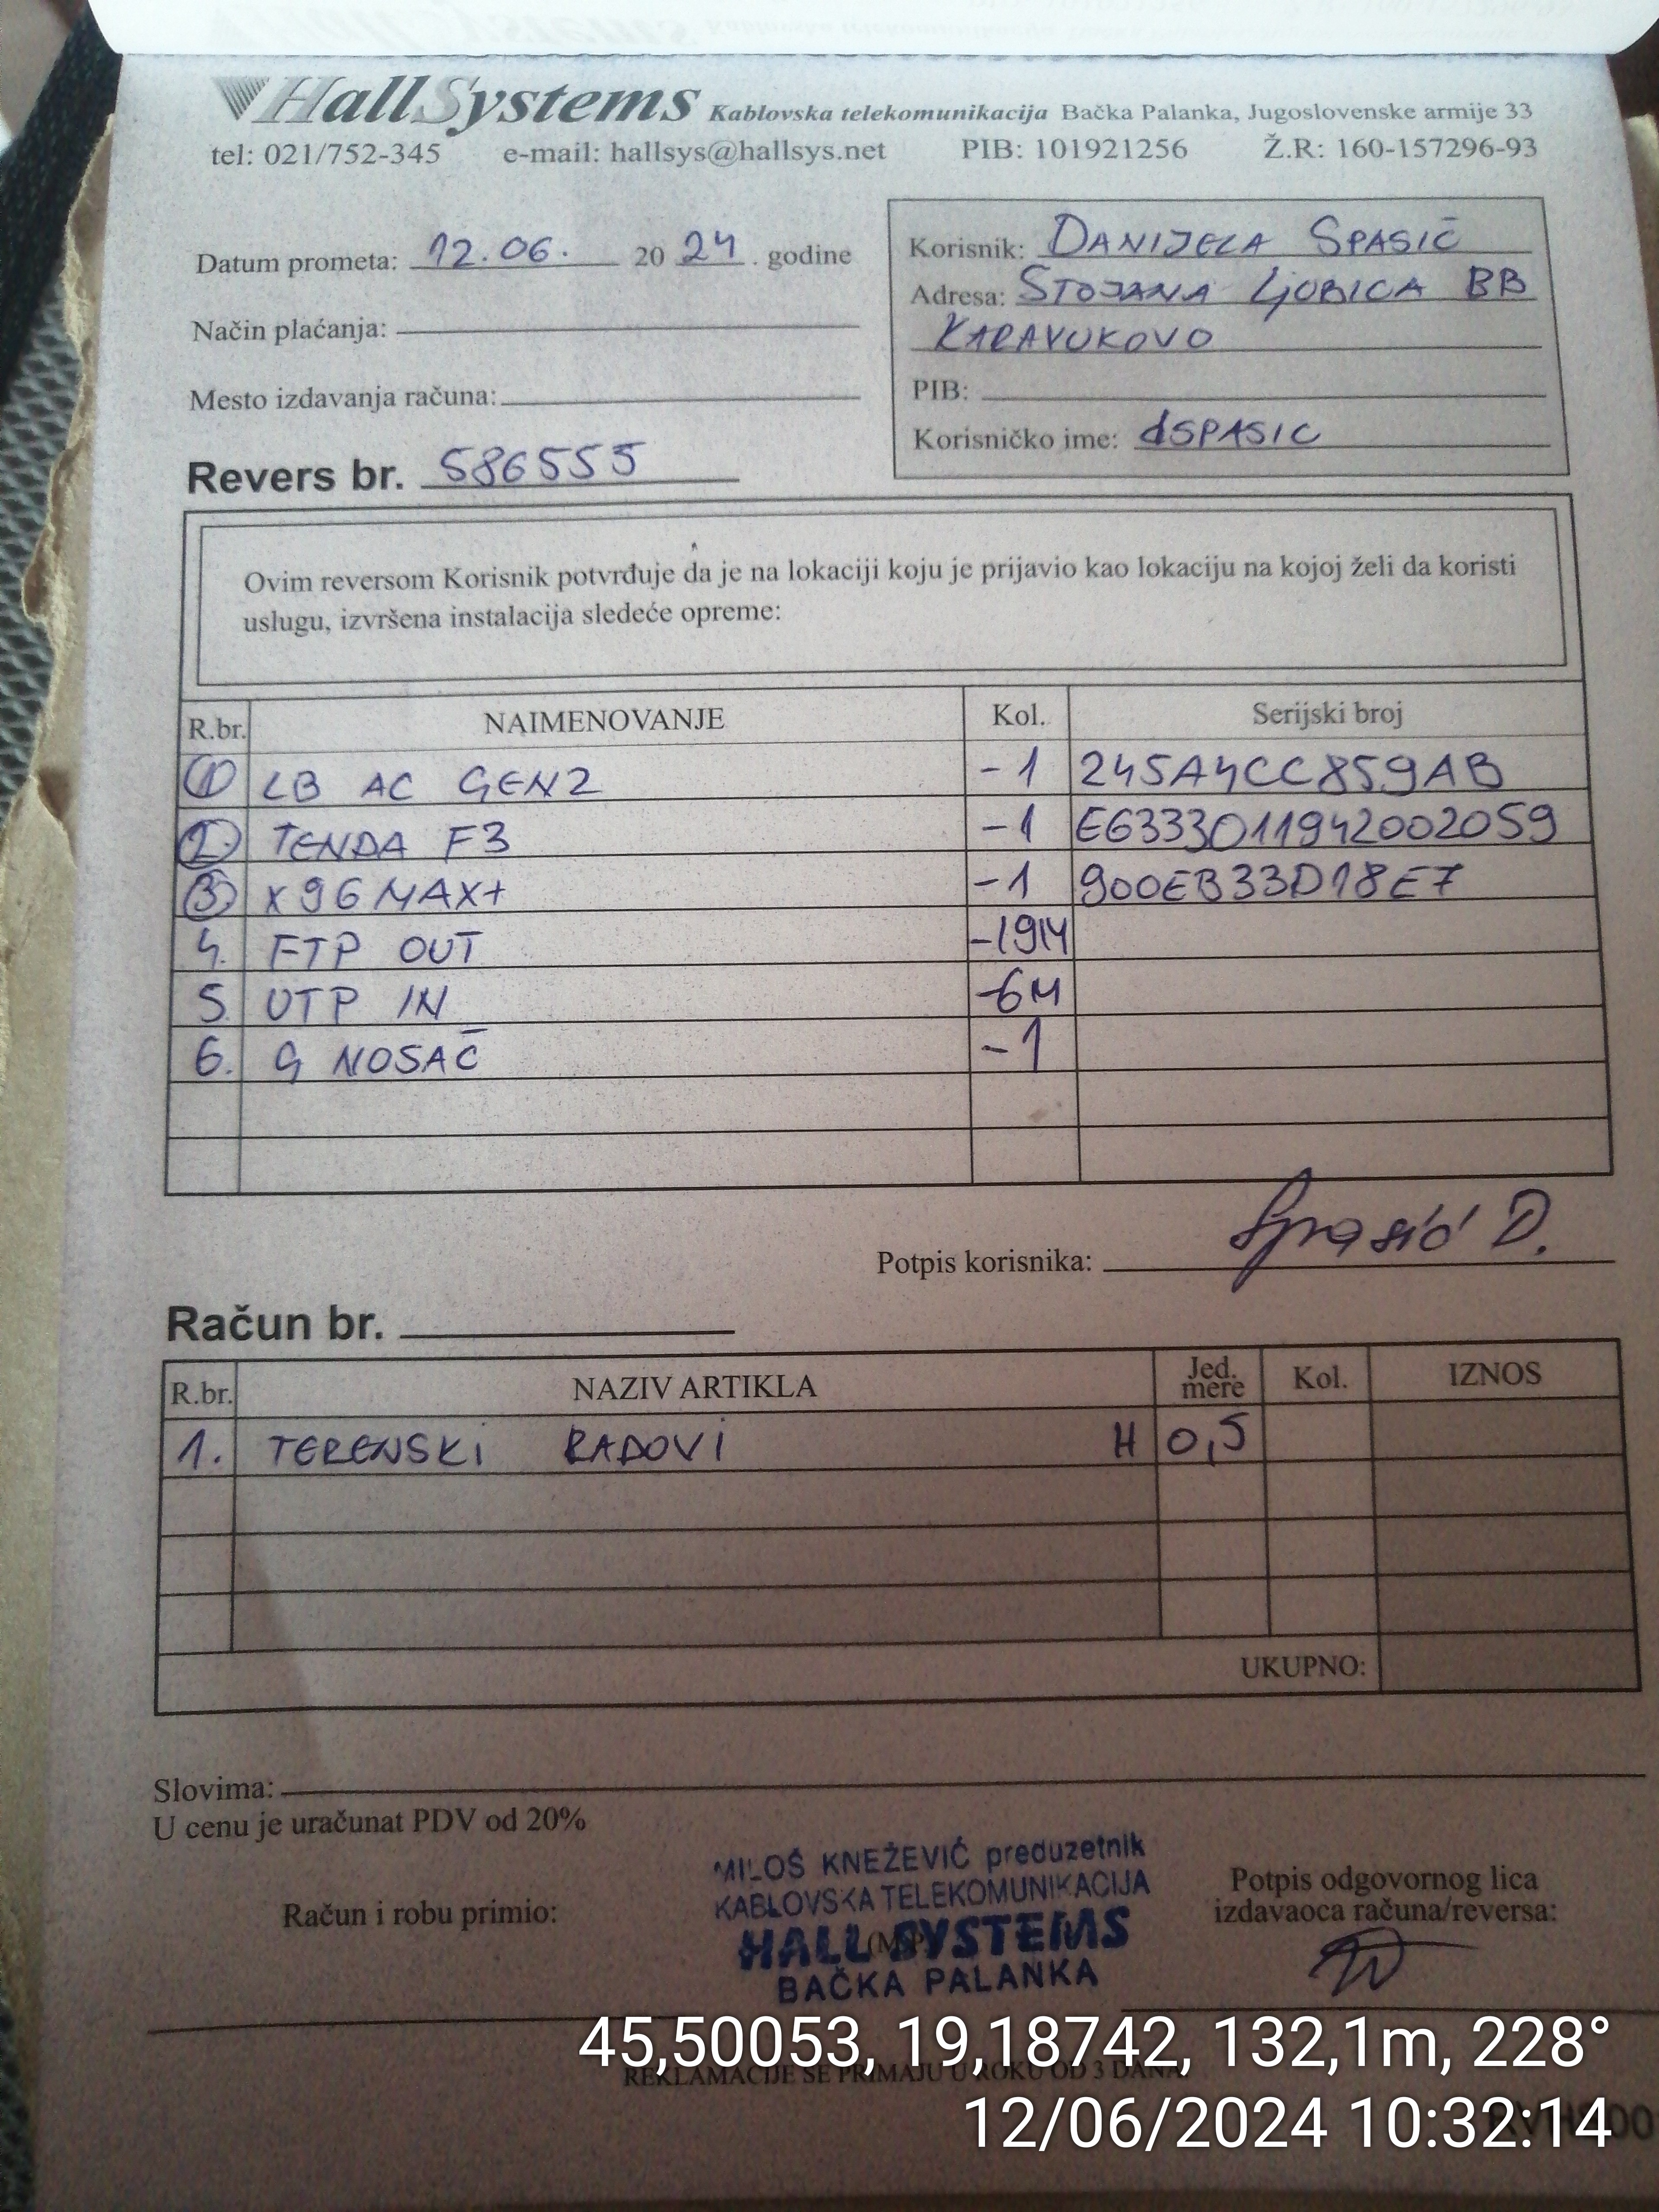 HallSystems Kablovska telekomunikacija Bačka Palanka, Jugoslovenske armije 33
tel: 021/752-345 e-mail: hallsys@hallsys.net PIB: 101921256 Ž.R: 160-157296-93
Datum prometa: 12.06. 2024. godine
Način plaćanja:
Mesto izdavanja računa:
Revers br. 586555
Korisnik: DANIJELA SPASIĆ
Adresa: STOJANA LJUBICA BB
KARAVUKOVO
PIB:
Korisničko ime: dSPASIC
Ovim reversom Korisnik potvrđuje da je na lokaciji koju je prijavio kao lokaciju na kojoj želi da koristi
uslugu, izvršena instalacija sledeće opreme:
R.br. NAIMENOVANJE Kol. Serijski broj
1 LB AC GEN2 -1 245A4CC859AB
2. TENDA F3 -1 E6333011942002059
3 X96MAX+ -1 900EB33D18E7
4. FTP OUT -19M
5. UTP IN -6M
6. G NOSAČ -1
Potpis korisnika: Spasić D.
Račun br.
R.br. NAZIV ARTIKLA Jed. mere Kol. IZNOS
1. TERENSKI RADOVI H 0,5
UKUPNO:
Slovima:
U cenu je uračunat PDV od 20%
MILOŠ KNEŽEVIĆ preduzetnik
KABLOVSKA TELEKOMUNIKACIJA
HALL SYSTEMS
BAČKA PALANKA
Račun i robu primio:
(M.P.)
Potpis odgovornog lica
izdavaoca računa/reversa:
45,50053, 19,18742, 132,1m, 228°
REKLAMACIJE SE PRIMAJU U ROKU OD 3 DANA
12/06/2024 10:32:14